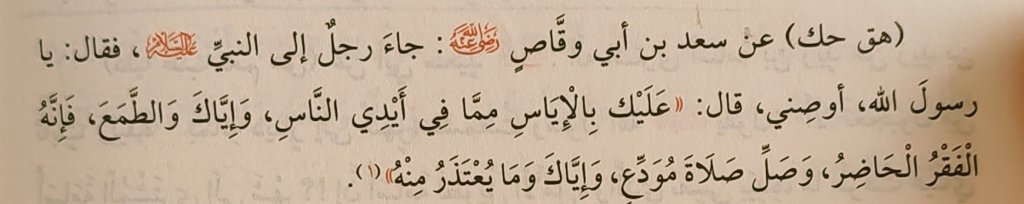 (هق حك) عن سعد بن أبي وقَّاصٍ ﵁: جاءَ رجلٌ إلى النبيِّ ﵇، فقال: يا
رسولَ الله، أوصِني، قال: «عَلَيْك بِالْإِيَاسِ مِمَّا فِي أَيْدِي النَّاسِ، وَإِيَّاكَ وَالطَّمَعَ، فَإِنَّهُ
الْفَقْرُ الْحَاضِرُ، وَصَلِّ صَلَاةَ مُوَدِّعٍ، وَإِيَّاكَ وَمَا يُعْتَذَرُ مِنْهُ»(١).